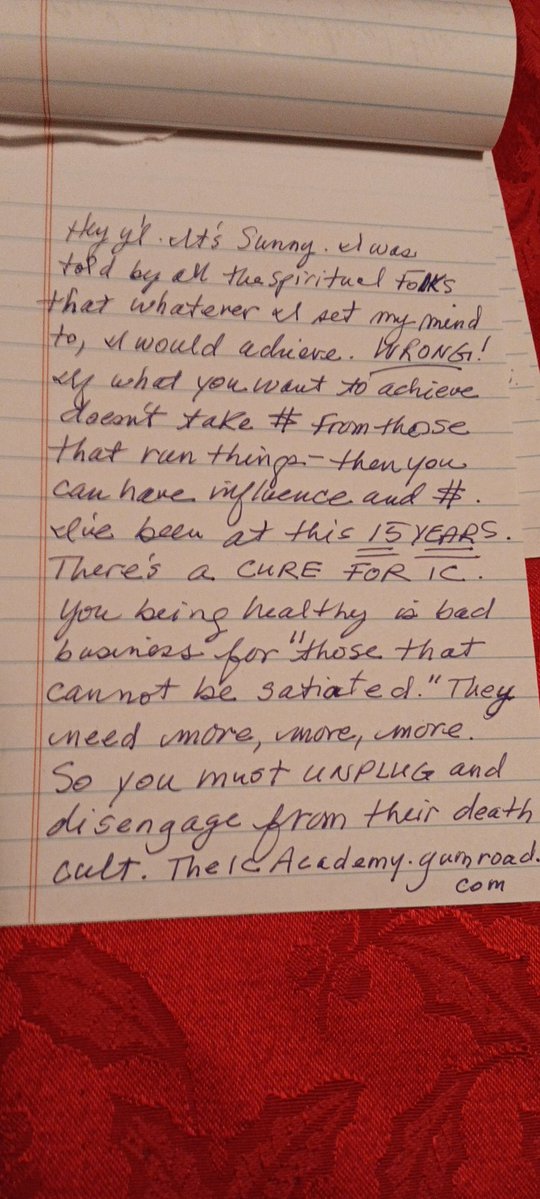 Hey y'l. It's Sunny. I was
told by all the spiritual FOlKS
that whatever I set my mind
to, I would achieve. WRONG!
If what you want to achieve
doesn't take $ from those
that run things - then you
can have influence and $.
I've been at this 15 YEARS.
There's a CURE FOR IC.
You being healthy is bad
business for "those that
cannot be satiated." They
need more, more, more.
So you must UNPLUG and
disengage from their death
cult. TheICAcademy.gumroad.
com